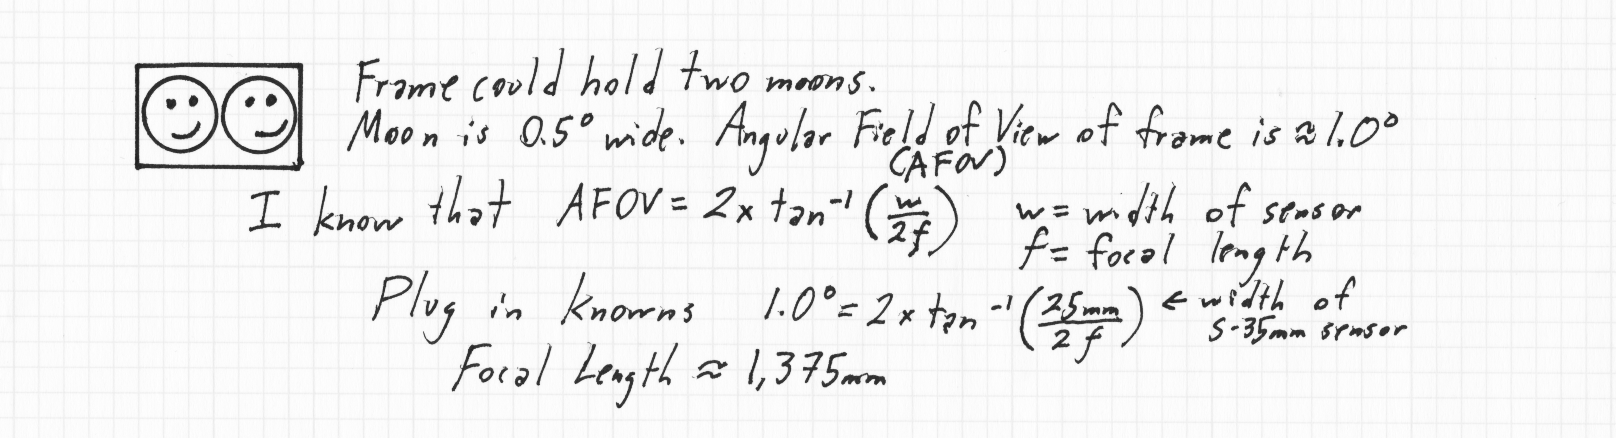 Frame could hold two moons.
Moon is 0.5° wide. Angular Field of View of frame is ≈ 1.0°
(AFOV)
I know that AFOV = 2 x tan⁻¹ (w/2f) w = width of sensor
f = focal length
Plug in knowns 1.0° = 2 x tan⁻¹ (25mm/2f) ← width of
S-35mm sensor
Focal Length ≈ 1,375mm